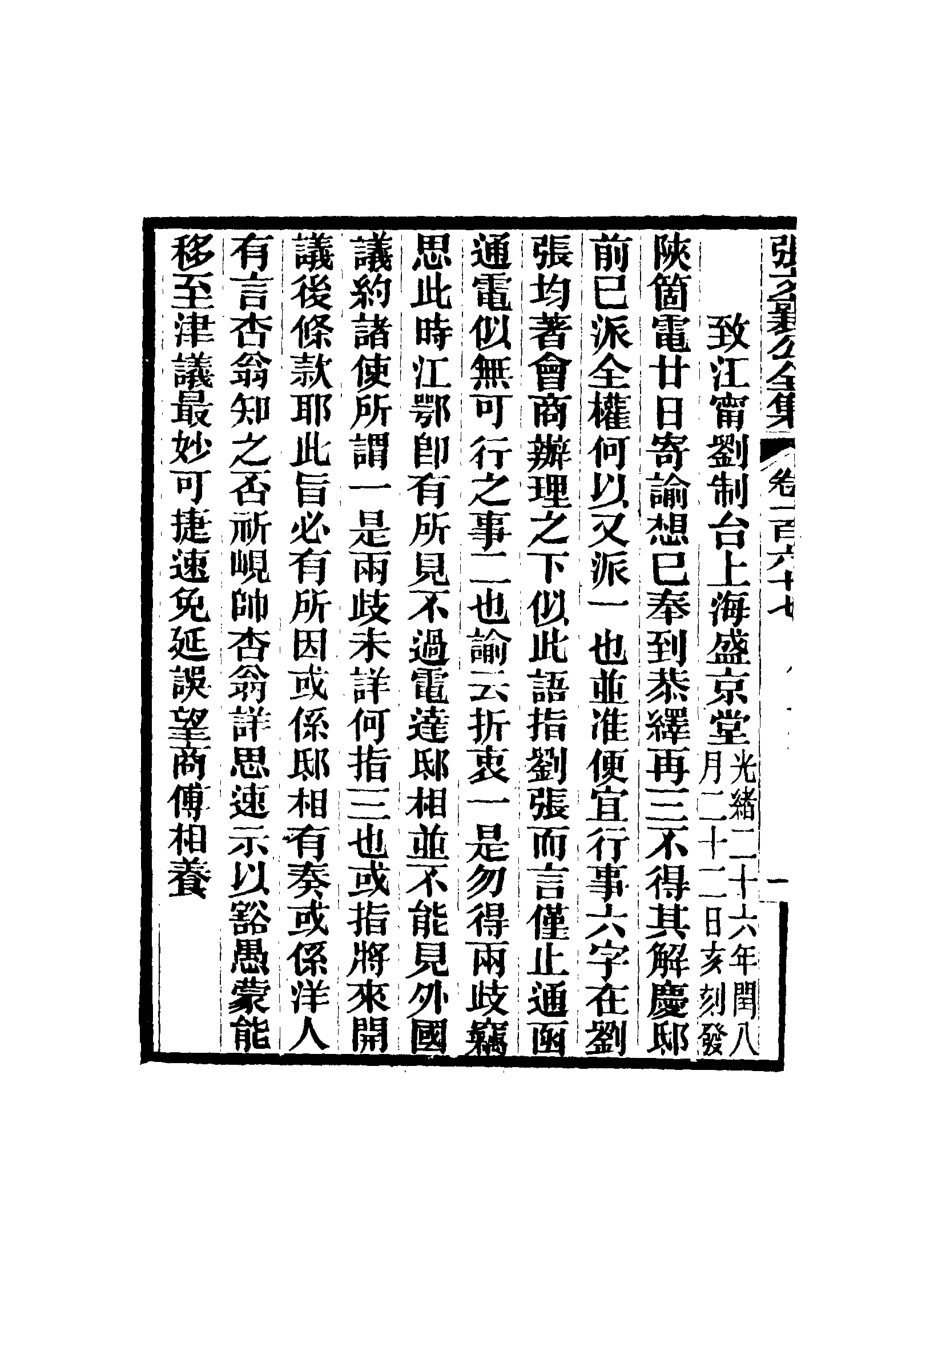 張文襄公全集 卷一百六十七
致江甯劉制台上海盛京堂光緒二十六年閏八月二十二日亥刻發
陝箇電廿日寄諭想已奉到恭繹再三不得其解慶邸
前已派全權何以又派一也並准便宜行事六字在劉
張均著會商辦理之下似此語指劉張而言僅止通函
通電似無可行之事二也諭云折衷一是勿得兩歧竊
思此時江鄂卽有所見不過電達邸相並不能見外國
議約諸使所謂一是兩歧未詳何指三也或指將來開
議後條款耶此旨必有所因或係邸相有奏或係洋人
有言杏翁知之否祈峴帥杏翁詳思速示以豁愚蒙能
移至津議最妙可捷速免延誤望商傅相養